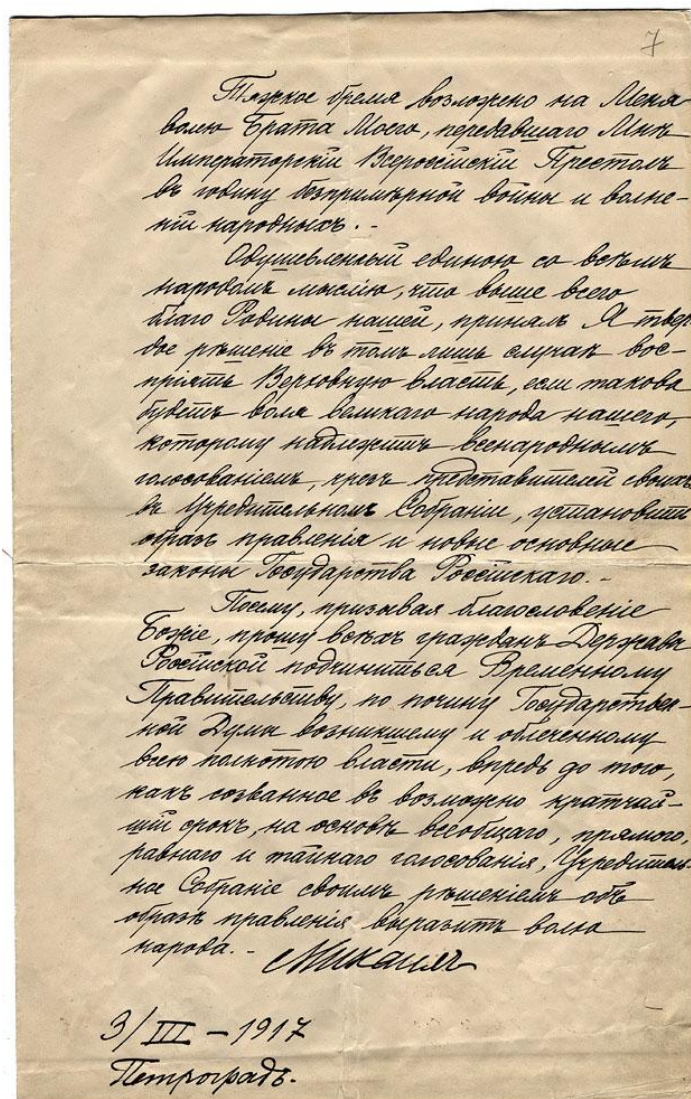 7
Тяжкое бремя возложено на Меня
волею Брата Моего, передавшаго Мнѣ
Императорскій Всероссійскій Престолъ
въ годину безпримѣрной войны и волне-
ній народныхъ. -
Одушевленный единою со всѣмъ
народомъ мыслію, что выше всего
благо Родины нашей, принялъ Я твер
дое рѣшеніе въ томъ лишь случаѣ вос-
пріять Верховную власть, если такова
будетъ воля великаго народа нашего,
которому надлежитъ всенароднымъ
голосованіемъ, чрезъ представителей своихъ
въ Учредительномъ Собраніи, установить
образъ правленія и новые основные
законы Государства Россійскаго. -
Посему, призывая благословеніе
Божіе, прошу всѣхъ гражданъ Державы
Россійской подчиниться Временному
Правительству, по почину Государствен-
ной Думы возникшему и облеченному
всею полнотою власти, впредь до того,
какъ созванное въ возможно кратчай-
шій срокъ, на основѣ всеобщаго, прямого,
равнаго и тайнаго голосованія, Учредитель-
ное Собраніе своимъ рѣшеніемъ объ
образѣ правленія выразитъ волю
народа. -
Михаилъ
3/III - 1917
Петроградъ.